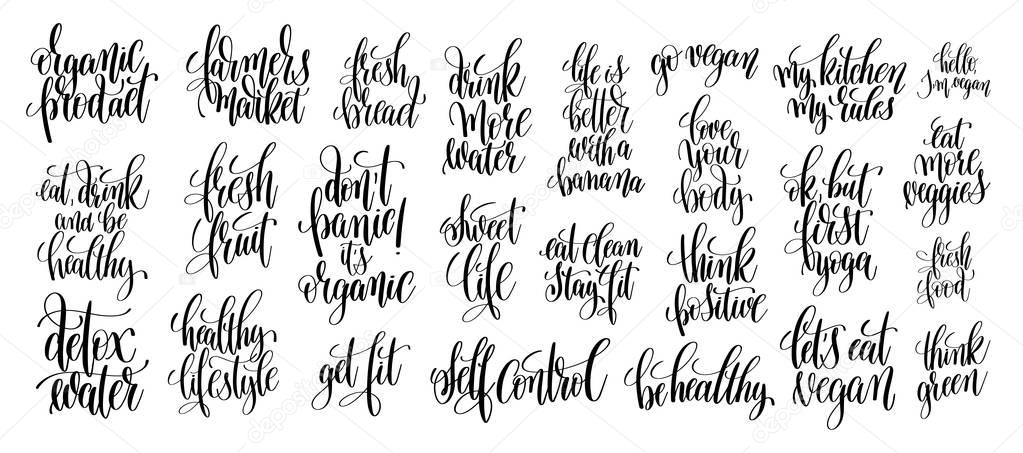 organic
prodact
farmers
market
fresh
bread
drink
more
water
life is
better
with a
banana
go vegan
my kitchen
my rules
hello,
I'm vegan
eat, drink
and be
healthy
fresh
fruit
don't
panic!
it's
organic
sweet
life
eat clean
stay fit
love
your
body
think
positive
ok, but
first
yoga
eat
more
veggies
fresh
food
detox
water
healthy
lifestyle
get fit
self control
be healthy
let's eat
vegan
think
green